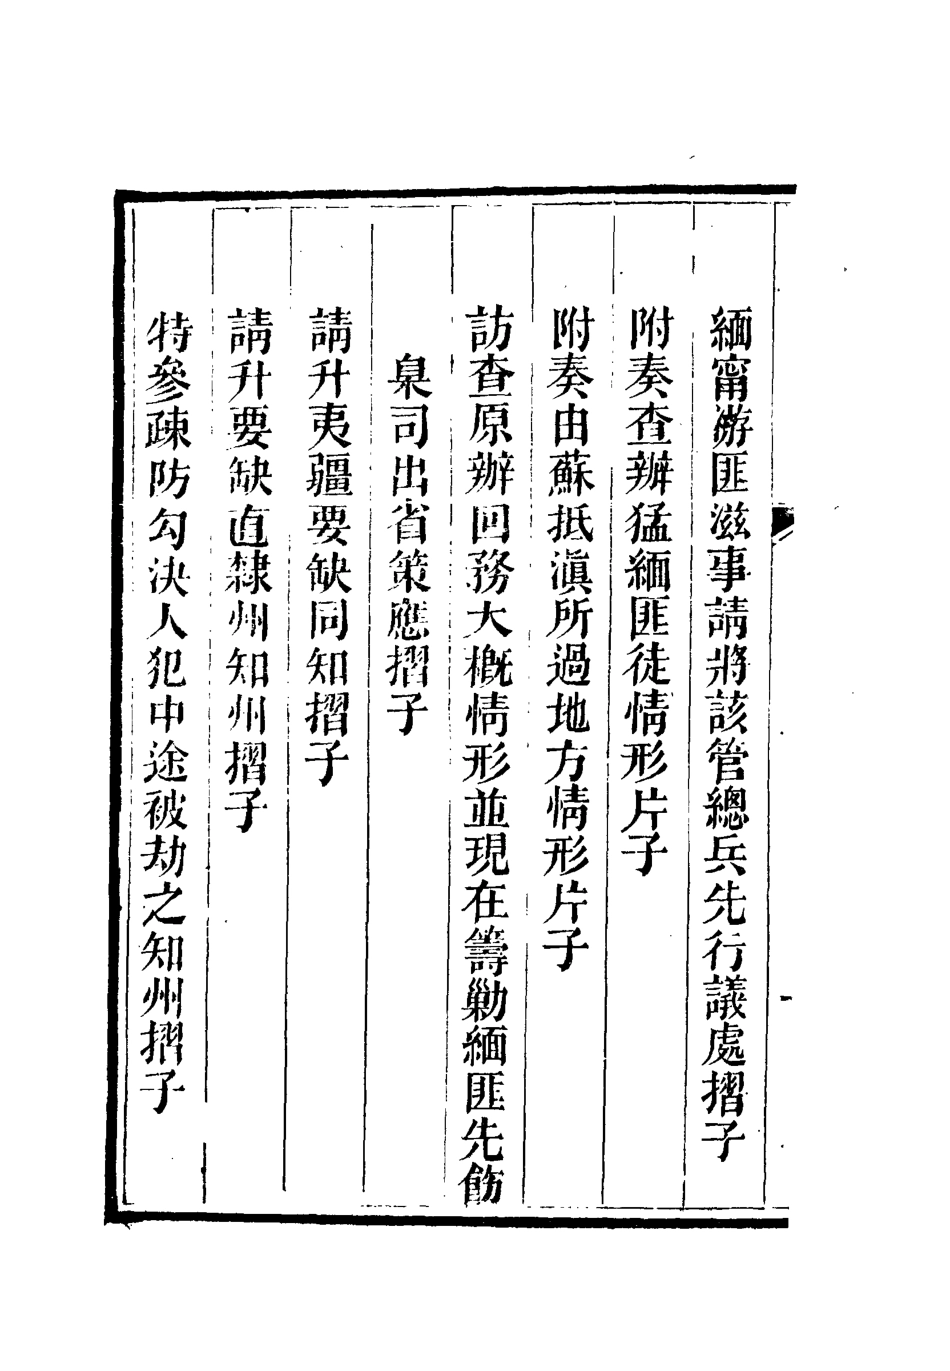 緬甯游匪滋事請將該管總兵先行議處摺子
附奏查辦猛緬匪徒情形片子
附奏由蘇抵滇所過地方情形片子
訪查原辦回務大概情形並現在籌勦緬匪先飭
臬司出省策應摺子
請升夷疆要缺同知摺子
請升要缺直隸州知州摺子
特參疎防勾決人犯中途被劫之知州摺子